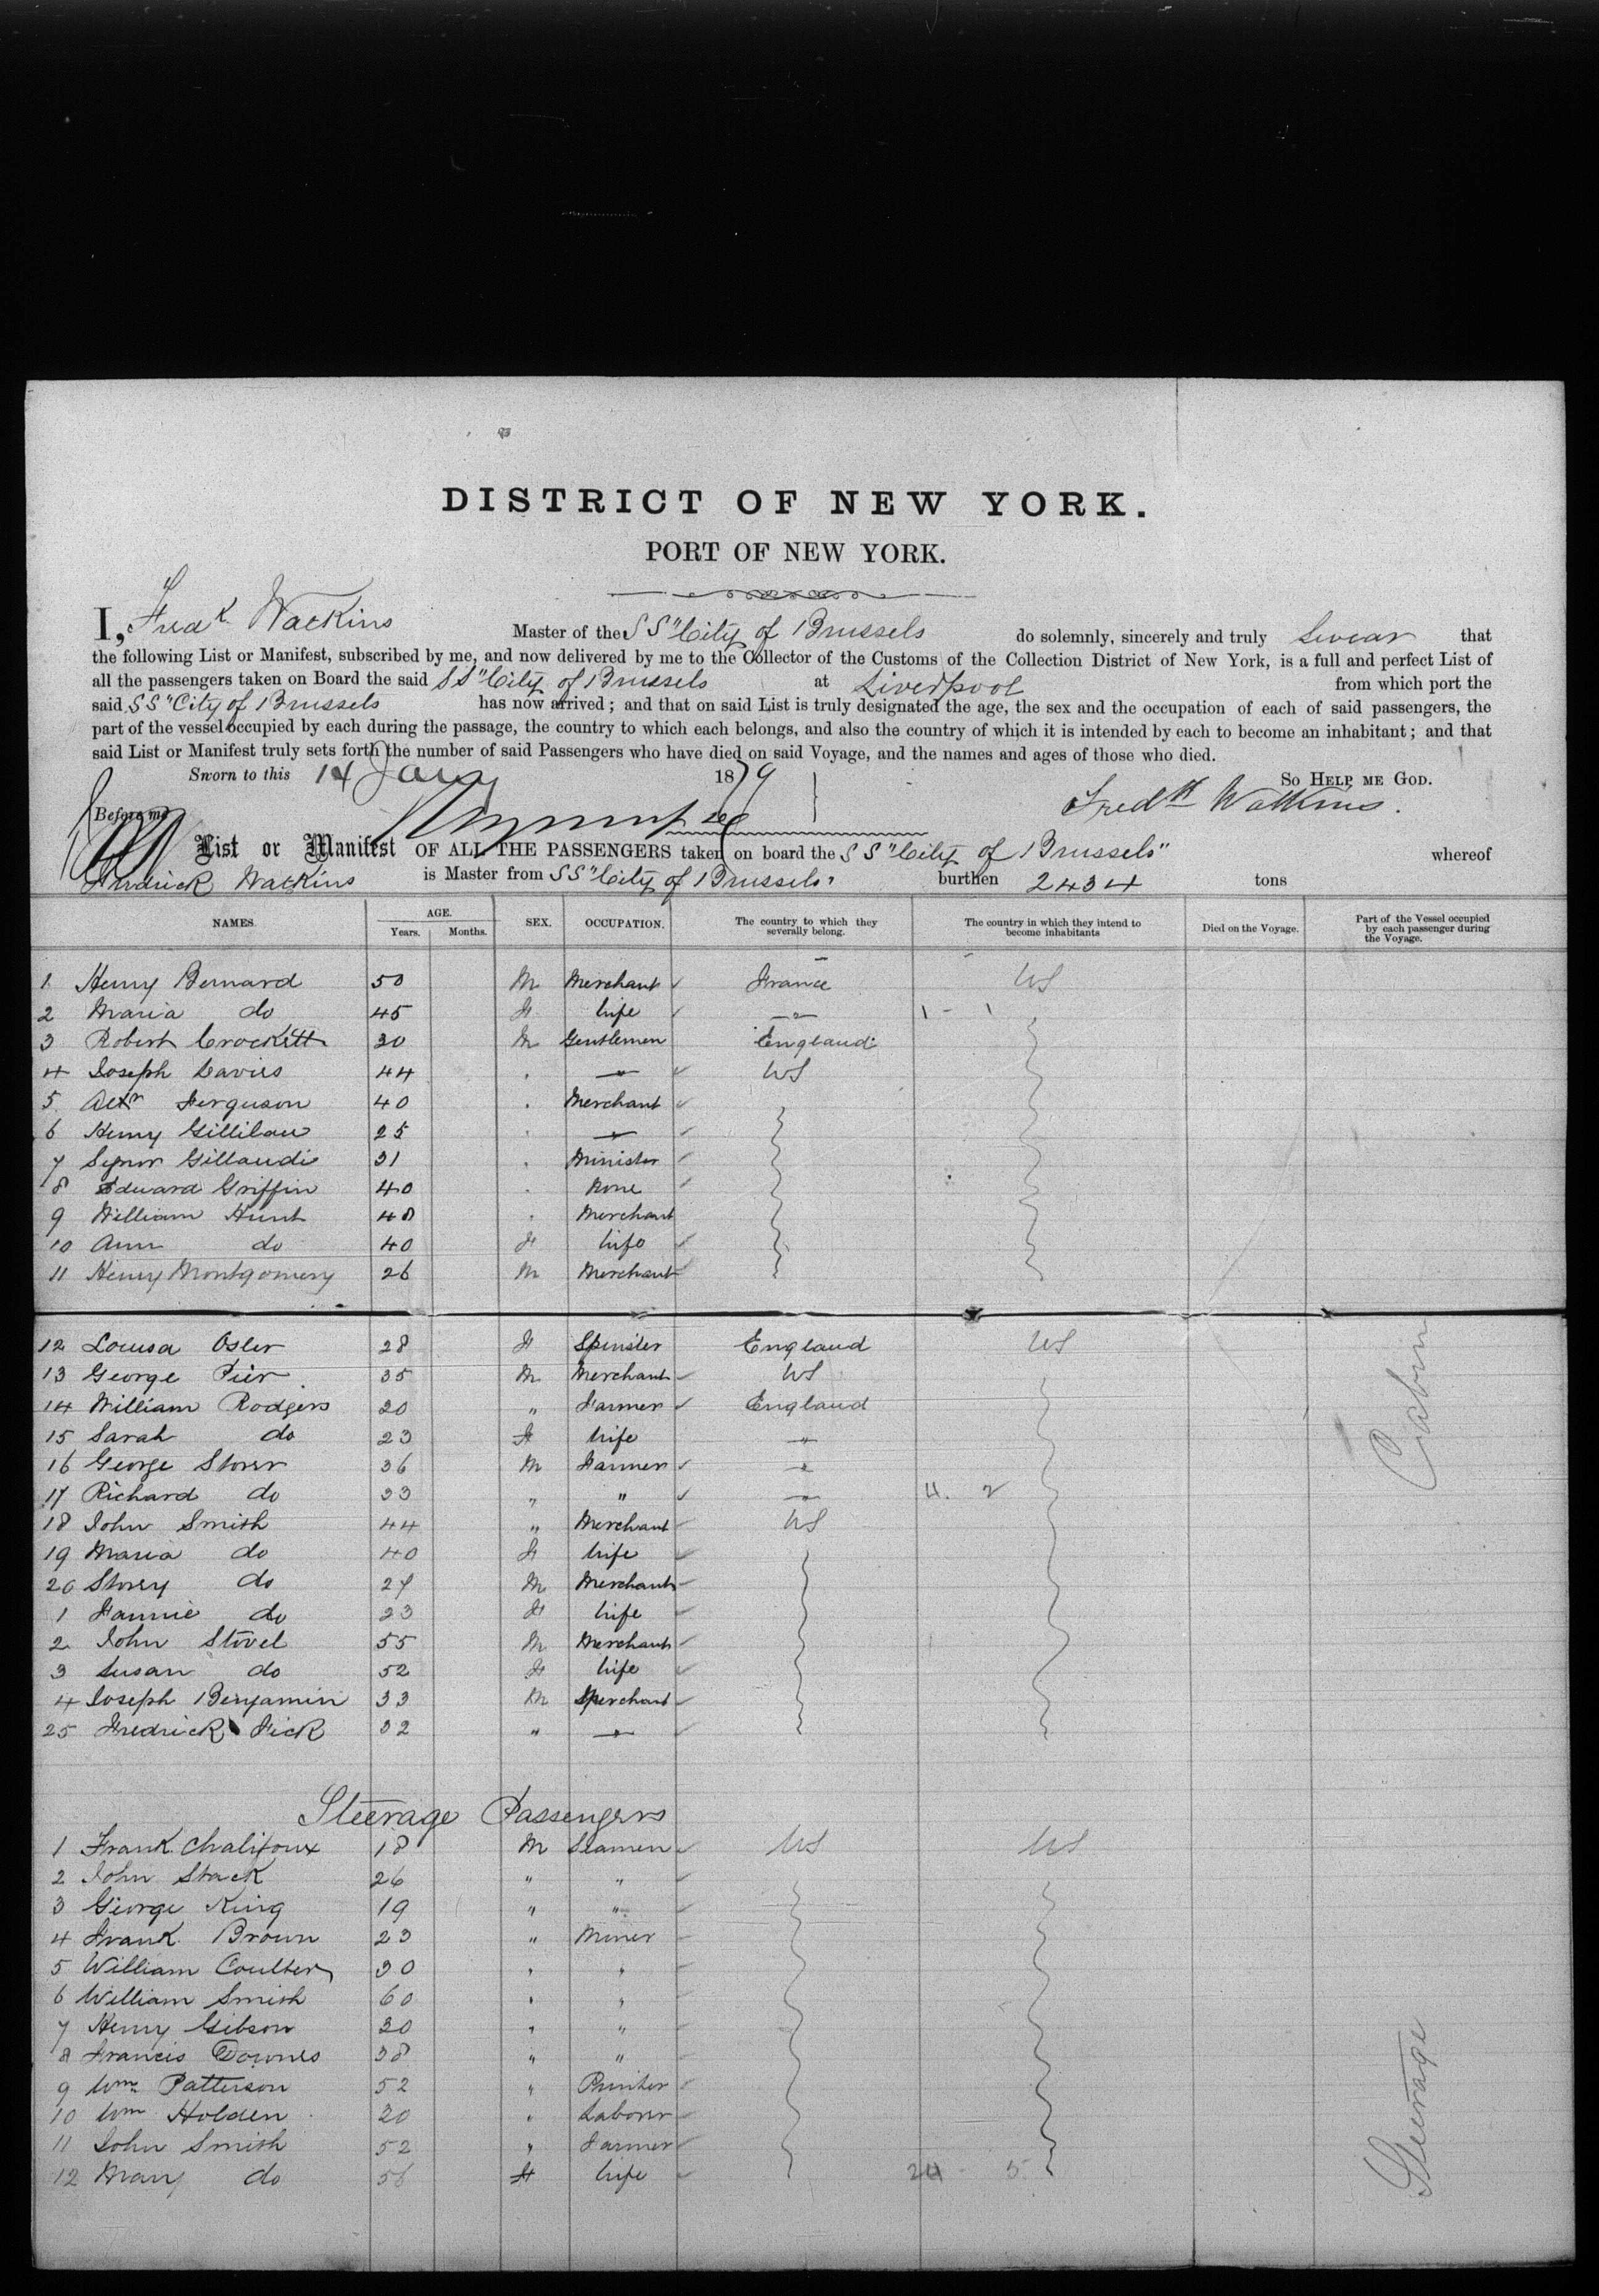 DISTRICT OF NEW YORK.
PORT OF NEW YORK.
I, Fredk Watkins Master of the SS "City of Brussels do solemnly, sincerely and truly Swear that
the following List or Manifest, subscribed by me, and now delivered by me to the Collector of the Customs of the Collection District of New York, is a full and perfect List of
all the passengers taken on Board the said SS "City of Brussels at Liverpool from which port the
said SS "City of Brussels has now arrived; and that on said List is truly designated the age, the sex and the occupation of each of said passengers, the
part of the vessel occupied by each during the passage, the country to which each belongs, and also the country of which it is intended by each to become an inhabitant; and that
said List or Manifest truly sets forth the number of said Passengers who have died on said Voyage, and the names and ages of those who died.
Sworn to this 14 Jany 1879 SO HELP ME GOD.
Before me Fredk Watkins.
List or Manifest OF ALL THE PASSENGERS taken on board the SS "City of Brussels" whereof
Fredrick Watkins is Master from SS "City of Brussels" burthen 2434 tons
NAMES. AGE. Years. Months. SEX. OCCUPATION. The country to which they severally belong. The country in which they intend to become inhabitants Died on the Voyage. Part of the Vessel occupied by each passenger during the Voyage.
1 Henry Bernard 50 M Merchant France US
2 Maria do 45 F Wife " 1 - 1
3 Robert Crockett 30 M Gentlemen England
4 Joseph Davies 44 " " US
5 Alexr Ferguson 40 " Merchant
6 Henry Gillilan 25 " "
7 Signor Gillandi 31 " Minister
8 Edward Griffin 40 " None
9 William Hunt 48 " Merchant
10 Ann do 40 F Wife
11 Henry Montgomery 26 M Merchant
12 Louisa Osler 28 F Spinster England US
13 George Pier 35 M Merchant US
14 William Rodgers 20 " Farmer England
15 Sarah do 23 F Wife "
16 George Storer 36 M Farmer "
17 Richard do 33 " " " 4. 2
18 John Smith 44 " Merchant US
19 Maria do 40 F Wife
20 Storey do 27 M Merchant
1 Fannie do 23 F Wife
2 John Stovel 55 M Merchant
3 Susan do 52 F Wife
4 Joseph Benjamin 33 M Merchant
25 Fredrick Fick 32 " "
Cabin
Steerage Passengers
1 Frank Chalifoux 18 M Seamen US US
2 John Stack 26 " "
3 George King 19 " "
4 Frank Brown 23 " Miner
5 William Coulter 30 " "
6 William Smith 60 " "
7 Henry Gibson 30 " "
8 Francis Downes 38 " "
9 Wm Patterson 52 " Printer
10 Wm Holden 20 " Laborer
11 John Smith 52 " Farmer
12 Mary do 56 F Wife 24 5
Steerage